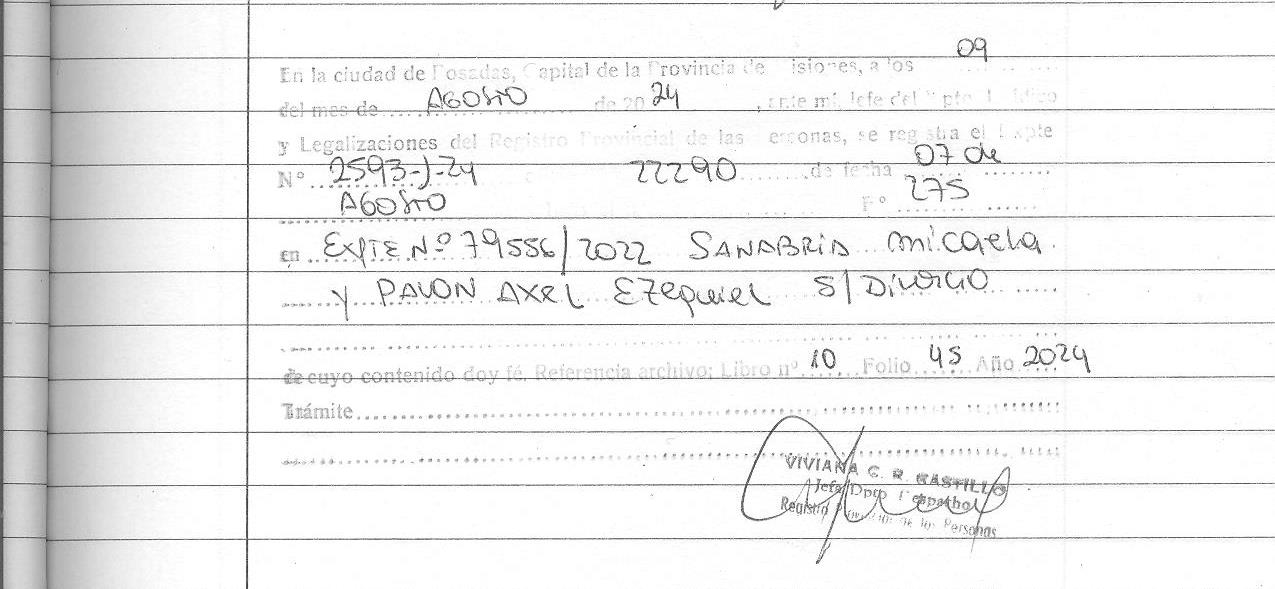 En la ciudad de Posadas, Capital de la Provincia de Misiones, a los 09
del mes de AGOSTO de 2024, ante mi, Jefe del Dpto. Jurídico
y Legalizaciones del Registro Provincial de las Personas, se registra el Expte
Nº 2593-J-24 22290 de fecha 07 de
AGOSTO Fº 275
en EXPTE Nº 79556/2022 SANABRIA micaela
y PAVON AXEL EZEquiel S/ Divorcio
de cuyo contenido doy fé. Referencia archivo: Libro nº 10 Folio 45 Año 2024
Trámite
VIVIANA C. R. CASTILLO
Jefa Dpto Despacho
Registro Provincial de las Personas